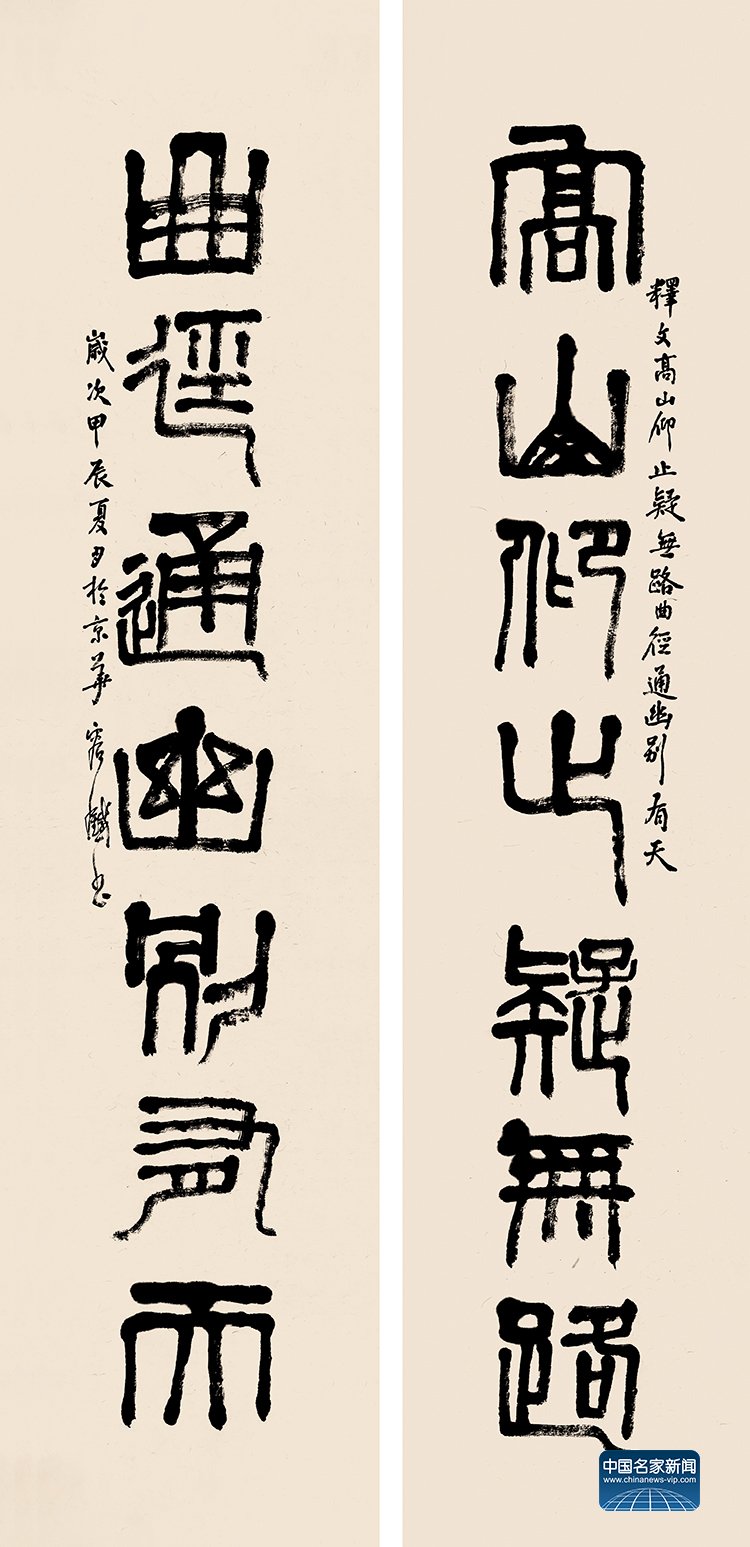 釋文高山仰止疑無路曲徑通幽別有天
高山仰止疑無路
曲徑通幽別有天
歲次甲辰夏月於京華容鐵書
中国名家新闻
www.chinanews-vip.com